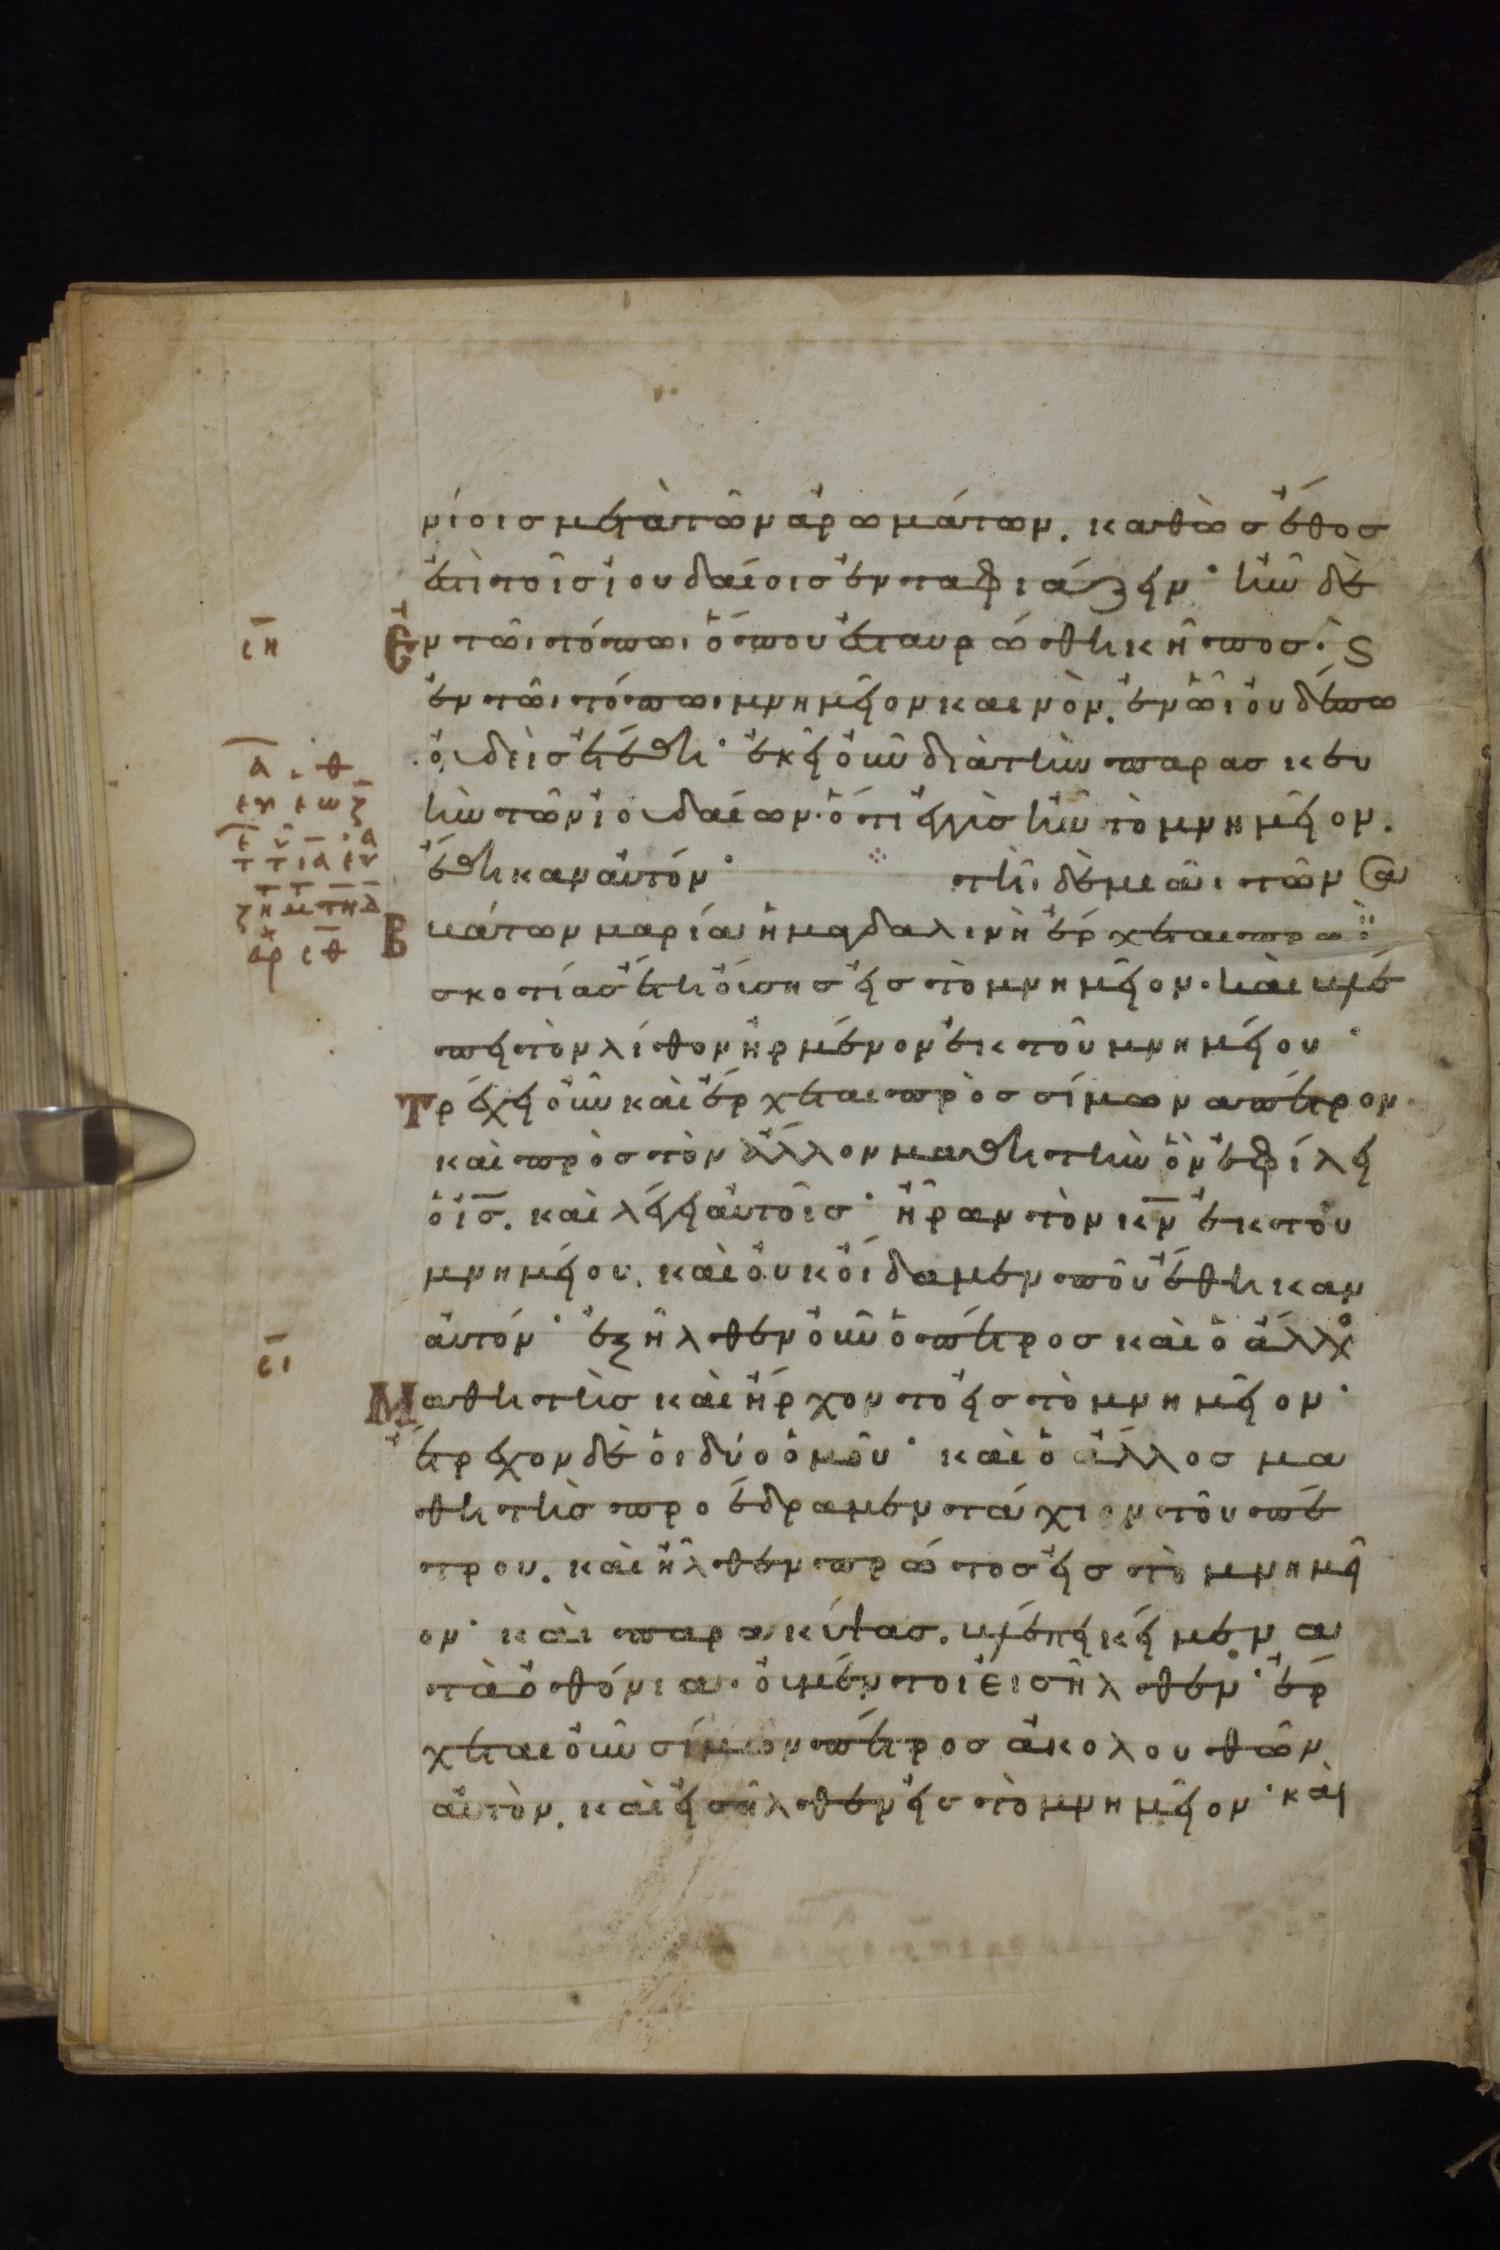 νίοις μετὰ τῶν ἀρωμάτων. καθὼς ἔθος
ἐστὶ τοῖς ἰουδαίοις ἐνταφιάζειν· ἦν δὲ
ιη Ἐν τῶι τόπωι ὅπου ἐσταυρώθη κῆπος· Ϛ
ἐν τῶι τόπωι μνημεῖον καινὸν. ἐν ὧι οὐδέπω
οὐδεὶς ἐτέθη· ἐκεῖ οὖν διὰ τὴν παρασκευ
ὴν τῶν ἰουδαίων· ὅτι ἐγγὺς ἦν τὸ μνημεῖον.
ἔθηκαν αὐτόν· ⁘ τῆι δὲ μιᾶι τῶν σα
Βάτων μαρία ἡ μαγδαλινὴ ἔρχεται πρωῒ
σκοτίας ἔτι οὔσης εἰς τὸ μνημεῖον. καὶ βλέ
πει τὸν λίθον ἠρμένον ἐκ τοῦ μνημείου·
Τρέχει οὖν καὶ ἔρχεται πρὸς σίμωνα πέτρον.
καὶ πρὸς τὸν ἄλλον μαθητὴν ὃν ἐφίλει
ὁ ις̅. καὶ λέγει αὐτοῖς· ἦραν τὸν κν̅ ἐκ τοῦ
μνημείου. καὶ οὐκ οἴδαμεν ποῦ ἔθηκαν
αὐτόν· ἐξῆλθεν οὖν ὁ πέτρος καὶ ὁ ἄλλος
Μαθητὴς καὶ ἤρχοντο εἰς τὸ μνημεῖον·
ἔτρεχον δὲ οἱ δύο ὁμοῦ· καὶ ὁ ἄλλος μα
θητὴς προέδραμεν τάχιον τοῦ πέ
τρου. καὶ ἦλθεν πρώτος εἰς τὸ μνημεῖ
ον· καὶ παρακύψας. βλέπει κείμενα
τὰ ὀθόνια. οὐ μέντοι εἰσῆλθεν· ἔρ
χεται οὖν σίμων πέτρος ἀκολουθῶν
αὐτὸν. καὶ εἰσῆλθεν εἰς τὸ μνημεῖον· καὶ